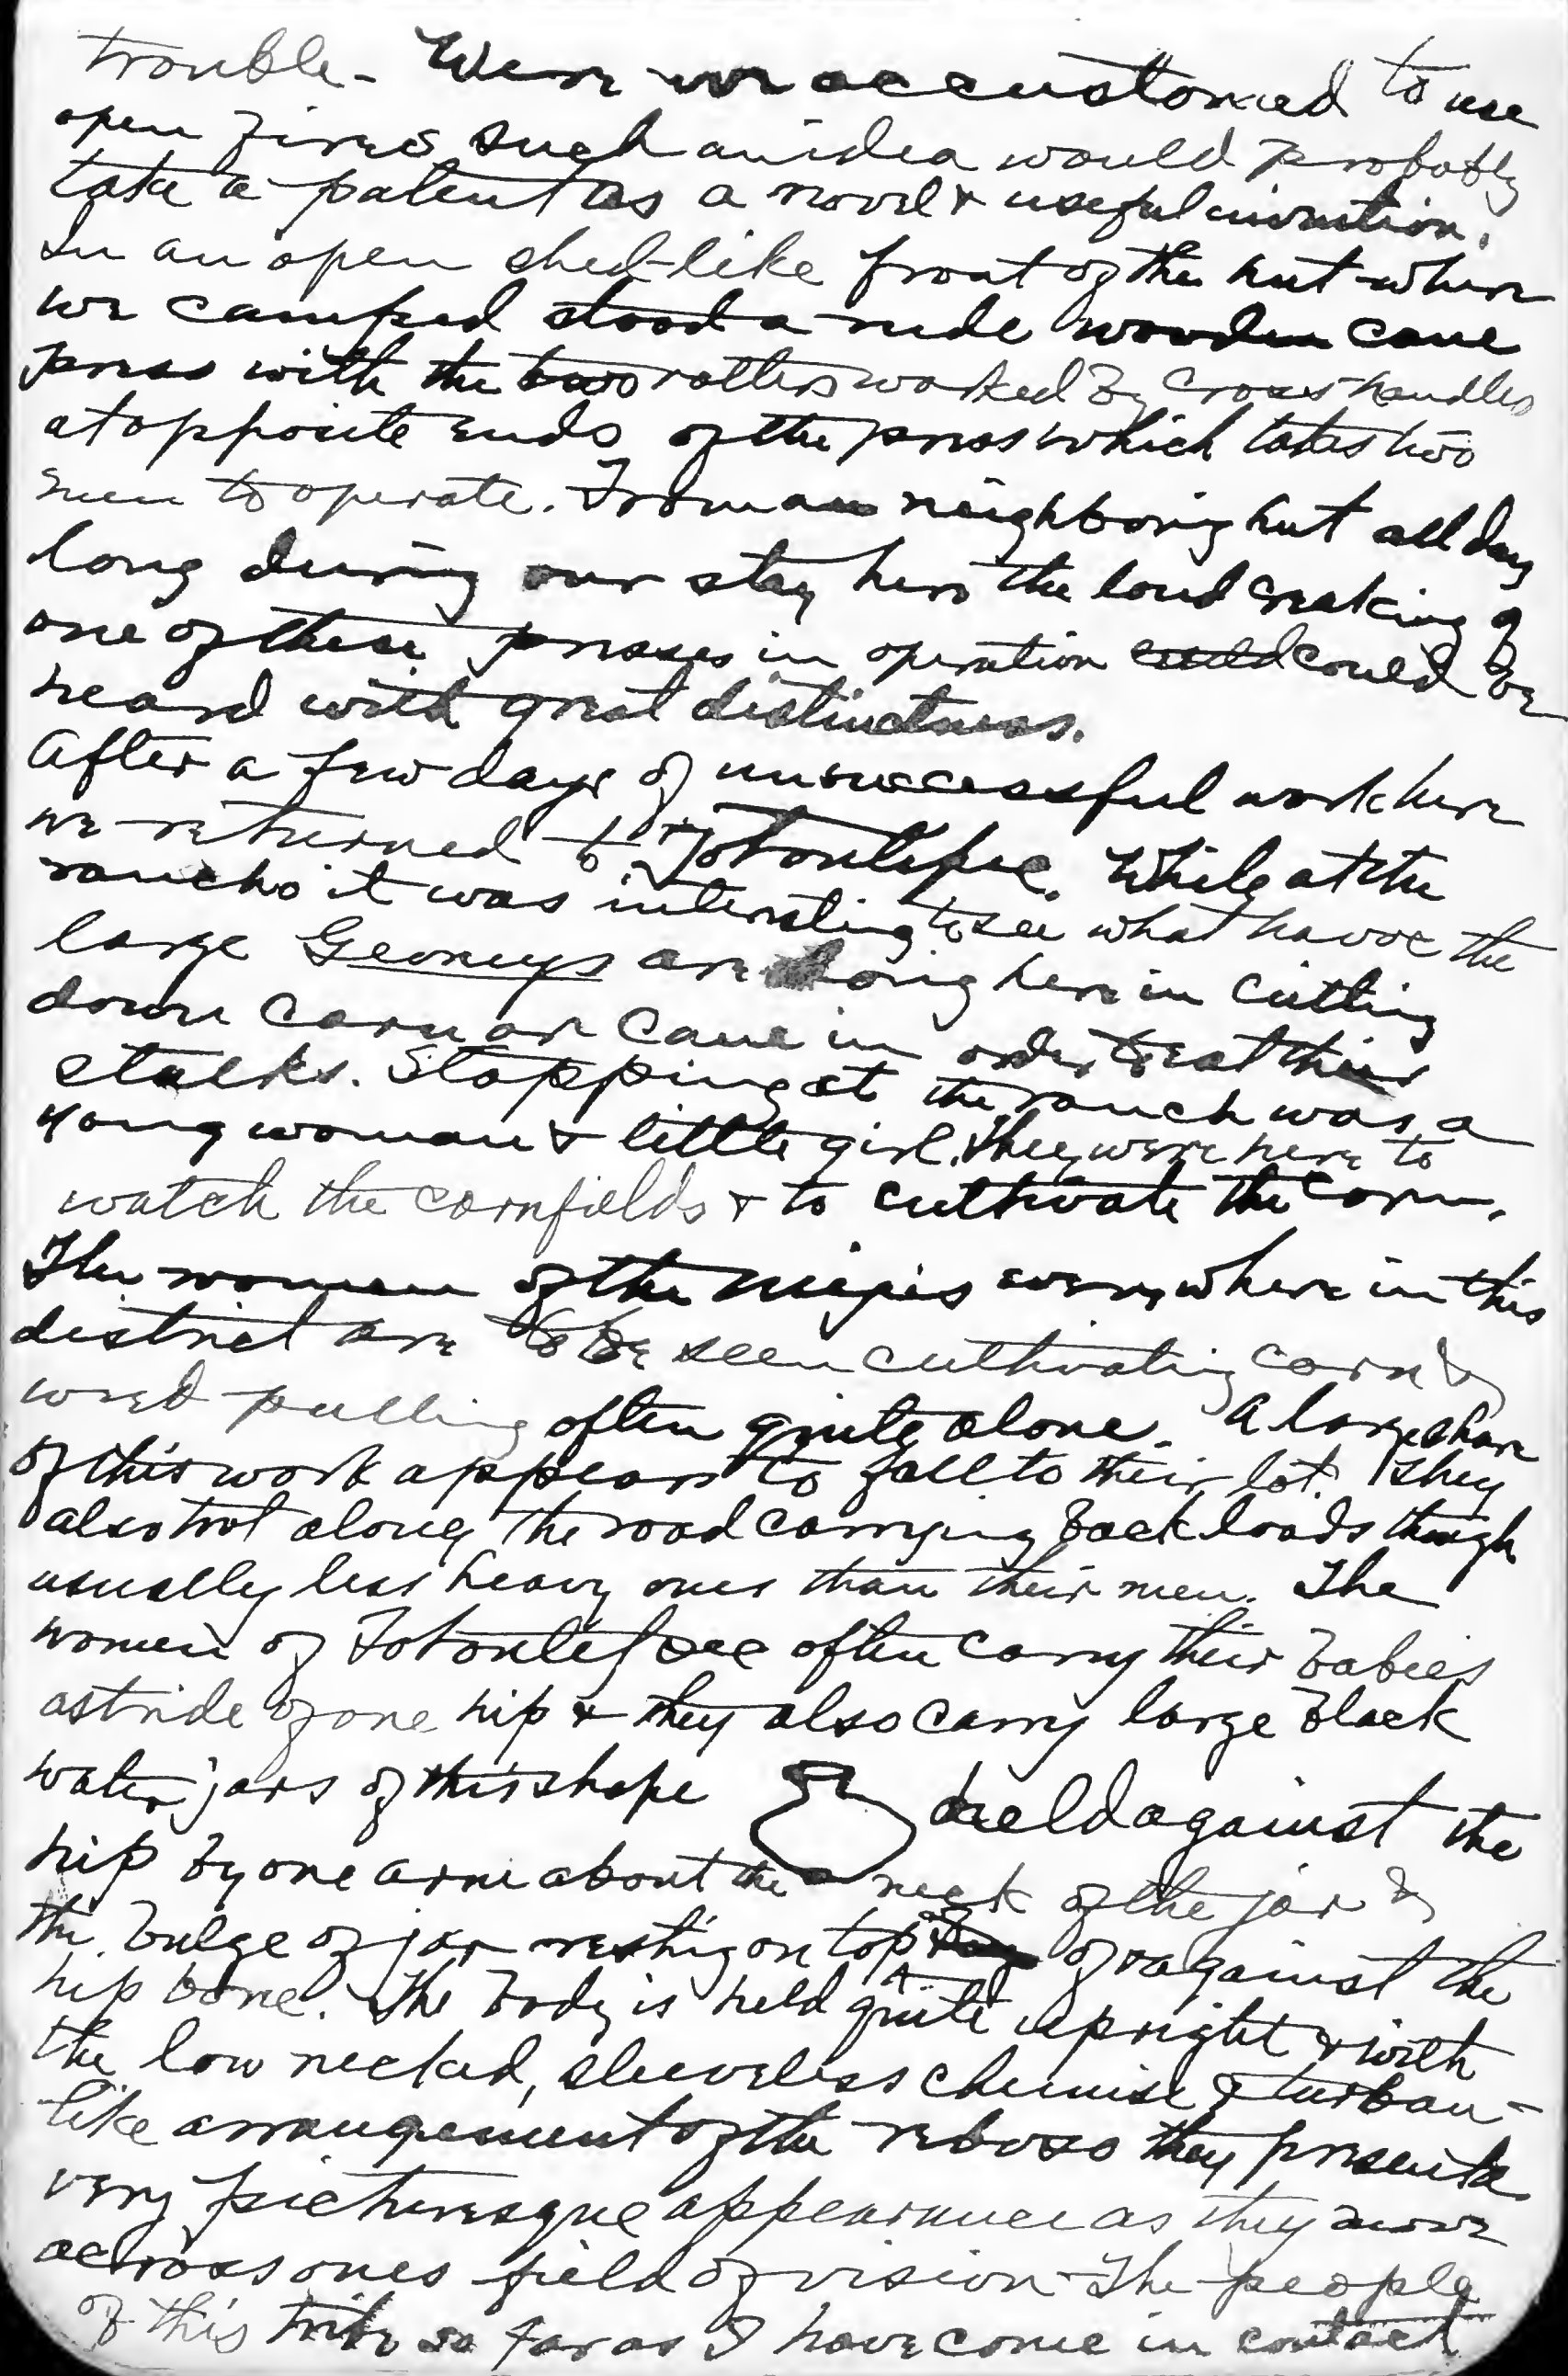 trouble - Were we accustomed to use
open fires such an idea would probably
take a patent as a novel & useful invention.
In an open shed-like front of the hut where
we camped stood a rude wooden cane
press with the two rollers worked by cross handles
at opposite ends of the press which takes two
men to operate. From a neighboring hut all day
long during our stay here the loud creaking of
one of these presses in operation could could be
heard with great distinctness.
After a few days of unsuccessful work here
we returned to Totontepec. While at the
rancho it was interesting to see what havoc the
large Geomys are doing here in cutting
down corn or cane in order to eat their
stalks. Stopping at the ranch was a
young woman & little girl. They were here to
watch the cornfields & to cultivate the corn.
The women of the Mijes everywhere in this
district are to be seen cultivating corn &
weed pulling often quite alone. A large share
of this work appears to fall to their lot. They
also trot along the road carrying back loads though
usually less heavy ones than their men. The
women of Totontepec often carry their babies
astride of one hip & they also carry large black
water jars of this shape held against the
hip by one arm about the neck of the jar &
the bulge of jar resting on top of or against the
hip bone. The body is held quite upright & with
the low necked, sleeveless chemise & turban-
like arrangement of the reboso they present a
very picturesque appearance as they move
across ones field of vision - The people
of this tribe so far as I have come in contact